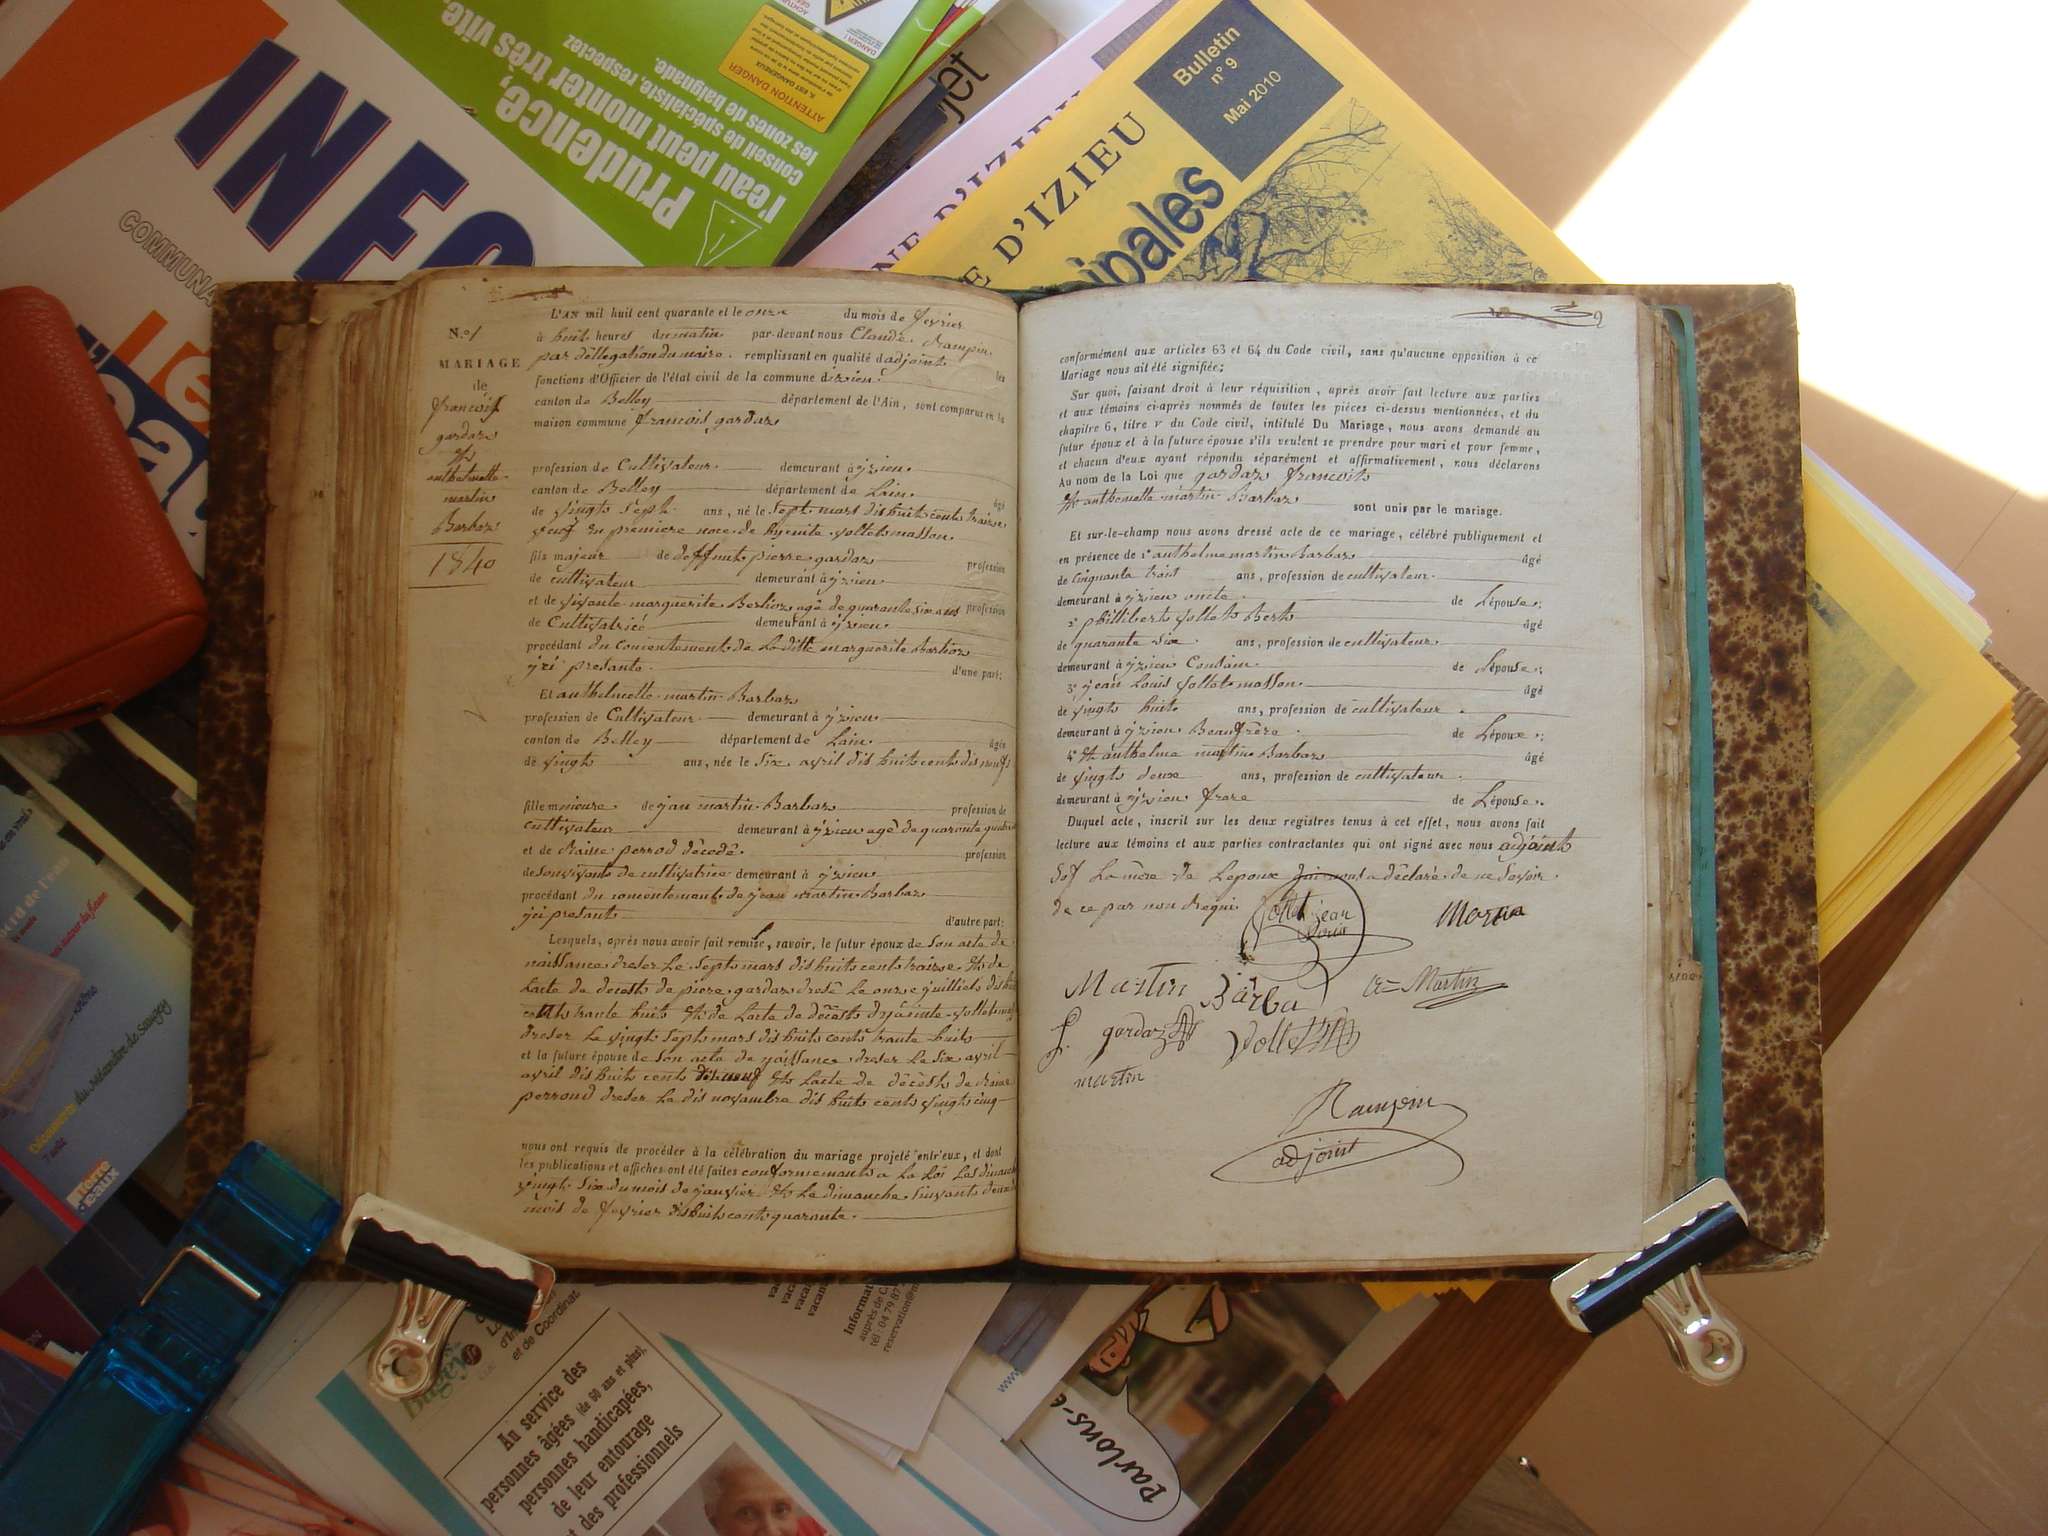 INFO
COMMUNA
Prudence,
l'eau peut monter très vite.
conseil de spécialiste, respectez
les zones de baignade.
ATTENTION DANGER
jet
Bulletin
n° 9
Mai 2010
NE D'IZIEU
E D'IZIEU
ipales
N.º 1
MARIAGE
de
francois
gardaz
et
anthelmette
martin
Barbaz
1840
L'AN mil huit cent quarante et le onze du mois de fevrier
à huit heures du matin par-devant nous Claude Rampin
par dellegation du maire remplissant en qualité d adjoint les
fonctions d'Officier de l'état civil de la commune d izieu
canton de Belley département de l'Ain, sont comparus en la
maison commune francois gardaz
profession de Cultivateur demeurant à yzieu
canton de Belley département de Lain âgé
de vingts sept ans, né le sept mars dis huit cents traize
veuf en premiere noce de hyacinte vollet masson
fils majeur de deffunt pierre gardaz profession
de cultivateur demeurant à yzieu
et de vivante marguerite Berlioz agé de quarante six ans profession
de Cultivatrice demeurant à yzieu
procédant du concentement de La ditte marguerite Barlioz
yci presante d'une part;
Et anthelmette martin Barbaz
profession de Cultivateur demeurant à yzieu
canton de Belley département de Lain âgée
de vingts ans, née le six avril dis huit cents dis neufs
fille mineure de jean martin Barbaz profession de
cultivateur demeurant à yzieu agé de quarante quatre
et de Claire perrod décedé profession
de son vivant de cultivatrice demeurant à yzieu
procédant du concentement de jean martin Barbaz
yci presant d'autre part;
Lesquels, après nous avoir fait remise, savoir, le futur époux de son acte de
naissance dreser Le sept mars dis huit cents traize et de
Lacte de decest de piere gardaz dresé Le onze juilliet dis huit
cents trante huit et de Lacte de décest dyacinte vollet masson
dreser Le vingt sept mars dis huit cents trante huit
et la future épouse de son acte de naissance dreser Le six avril
avril dis huit cents dis neuf et Lacte de décest de Claire
perroud dreser Le dis novambre dis huit cents vingts cinq
nous ont requis de procéder à la célébration du mariage projeté entr'eux, et dont
les publications et affiches ont été faites conformemants a La Loi Les dimanche
vingt six du mois de janvier et Le dimanche suivant deux du
mois de fevrier dis huit cents quarante
2
conformément aux articles 63 et 64 du Code civil, sans qu'aucune opposition à ce
Mariage nous ait été signifiée;
Sur quoi, faisant droit à leur réquisition, après avoir fait lecture aux parties
et aux témoins ci-après nommés de toutes les pièces ci-dessus mentionnées, et du
chapitre 6, titre v du Code civil, intitulé Du Mariage, nous avons demandé au
futur époux et à la future épouse s'ils veulent se prendre pour mari et pour femme,
et chacun d'eux ayant répondu séparément et affirmativement, nous déclarons
Au nom de la Loi que gardaz francois
et anthelmette martin Barbaz sont unis par le mariage.
Et sur-le-champ nous avons dressé acte de ce mariage, célébré publiquement et
en présence de 1° anthelme martin Barbaz âgé
de cinquante trois ans, profession de cultivateur
demeurant à yzieu oncle de Lépouse;
2° phillibert vollet Bert âgé
de quarante six ans, profession de cultivateur
demeurant à yzieu Cousin de Lépouse;
3° jean Louis vollet masson âgé
de vingts huit ans, profession de cultivateur
demeurant à yzieu Beaufrère de Lépoux;
4° et anthelme martin Barbaz âgé
de vingts deux ans, profession de cultivateur
demeurant à yzieu frere de Lépouse.
Duquel acte, inscrit sur les deux registres tenus à cet effet, nous avons fait
lecture aux témoins et aux parties contractantes qui ont signé avec nous adjoint
sof La mère de Lepoux qui nous a déclaré de ne savoir
de ce par nou requi
vollet jean
louis
Martin
Martin Barba
a= Martin
f. gardaz
Vollet
martin
Rampin
adjoint
Terre
d'eaux
Bugey
et de Coordinat
An service des
personnes âgées (de 60 ans et plus),
personnes handicapées,
de leur entourage
et des professionnels
Informat
auprès de C
tél : 04 79 87
reservation@
www.
Parlons-e